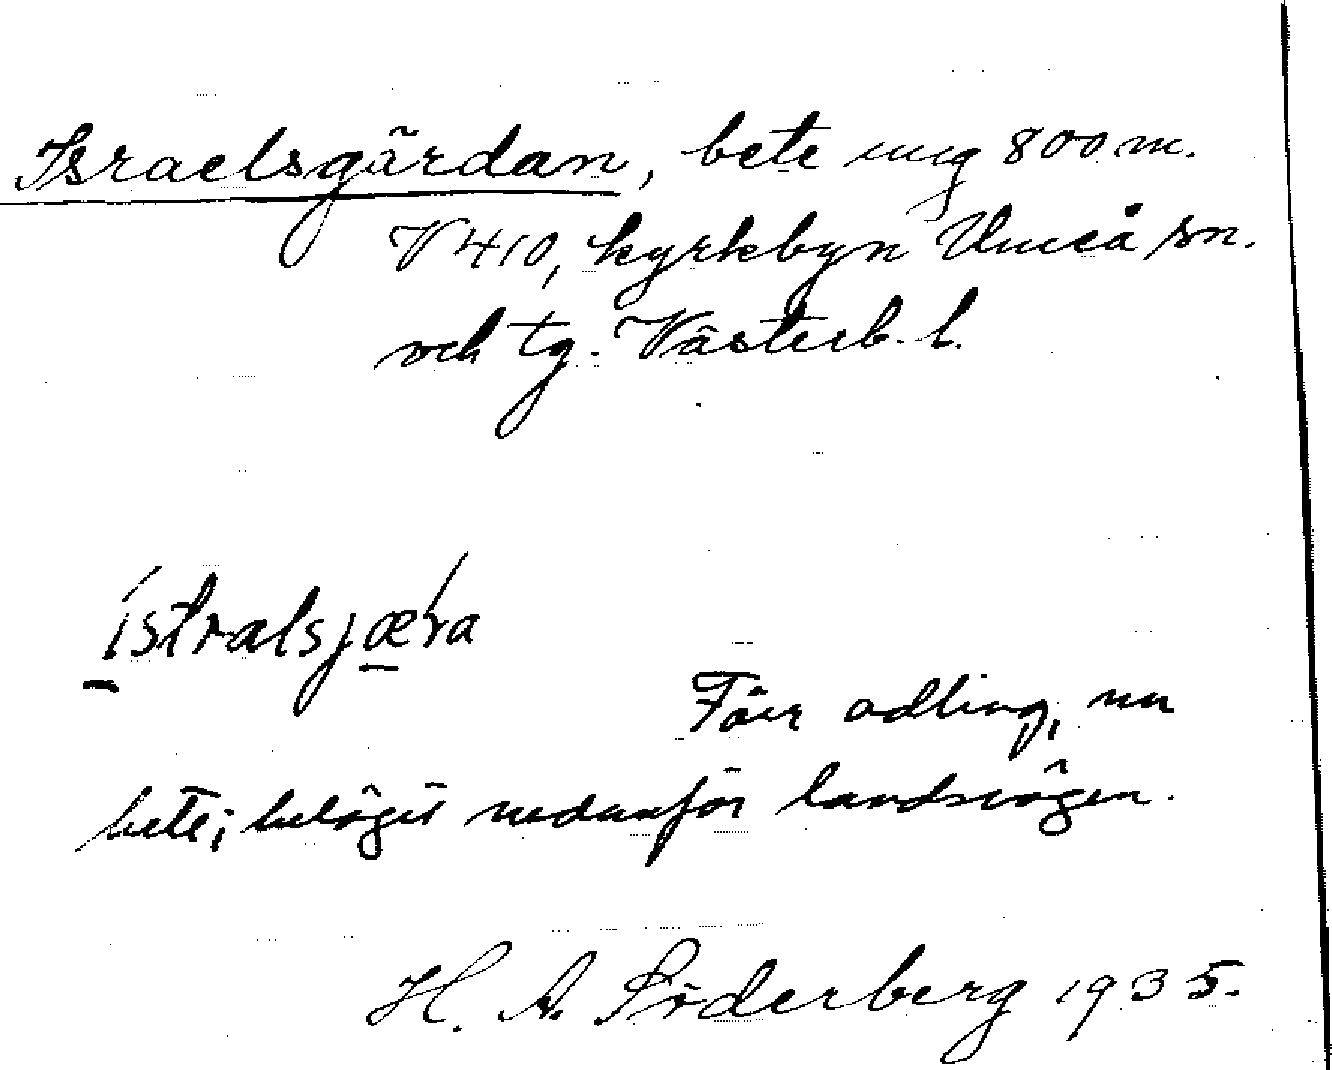 Israelsgärdan, bete ung 800 m.
V 410, kyrkbyn Umeå sn.
och tg. Västerb. l.
ístralsjæ´ra
Förr odling, nu
bete; beläget nedanför landsvägen.
H. A. Söderberg 1935.